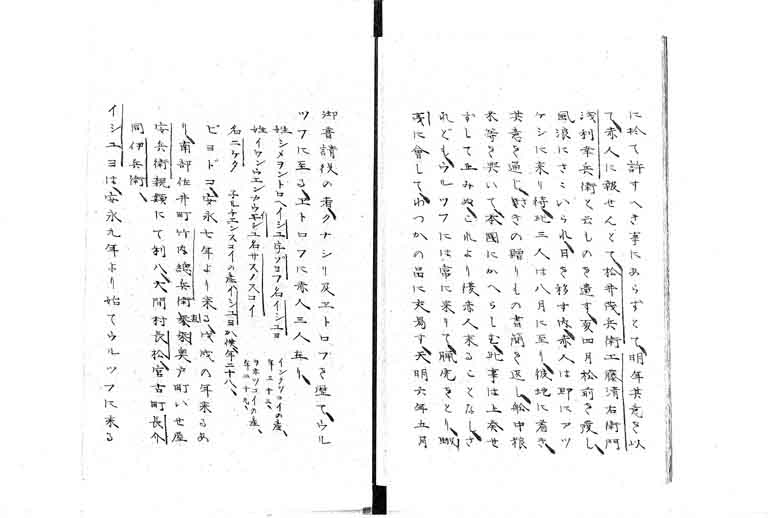 に於て許すへき事にあらずとて明年其意を以
て赤人に報せんとて松井茂兵衛工藤清右衛門
浅利幸兵衛と云ものを遣す亥四月松前を発し
風浪にさゝいられ日を移す内赤人は即にアツ
ケシに来り待此三人は八月に至り彼地に着き
其意を通し前きの贈りもの書簡を返し船中粮
米等を與いて本國にかへらしむ此事は上奏せ
ずして止みぬこれより後赤人来ることなしさ
れどもウルツフには常に来りて猟虎をとり
夷に會してわつかの品に交易す天明六年五月
御普請役の者クナシリ及ヱトロフを歴てウル
ツフに至るヱトロフに赤人三人在り
姓シメヲントロヘイシユ字ゾコフ名イシユヨ
イシクリコイの産、年三十三、
姓イワンウエンカウヰシユ名サスノスコイ
ヲホツコイの産、年二十九、
名ニケタ
子ルチエンスコイの産イシユヨか僕年二十八、
ビヨドコ、安永七年より来る戌戌の年来るあ
り、南部佐井町竹内總兵衛奥戸町いせ屋
安兵衛親類にて利八大間村長松宮古町長介
同伊兵衛、
イシユヨは安永九年より始てウルツフに来る